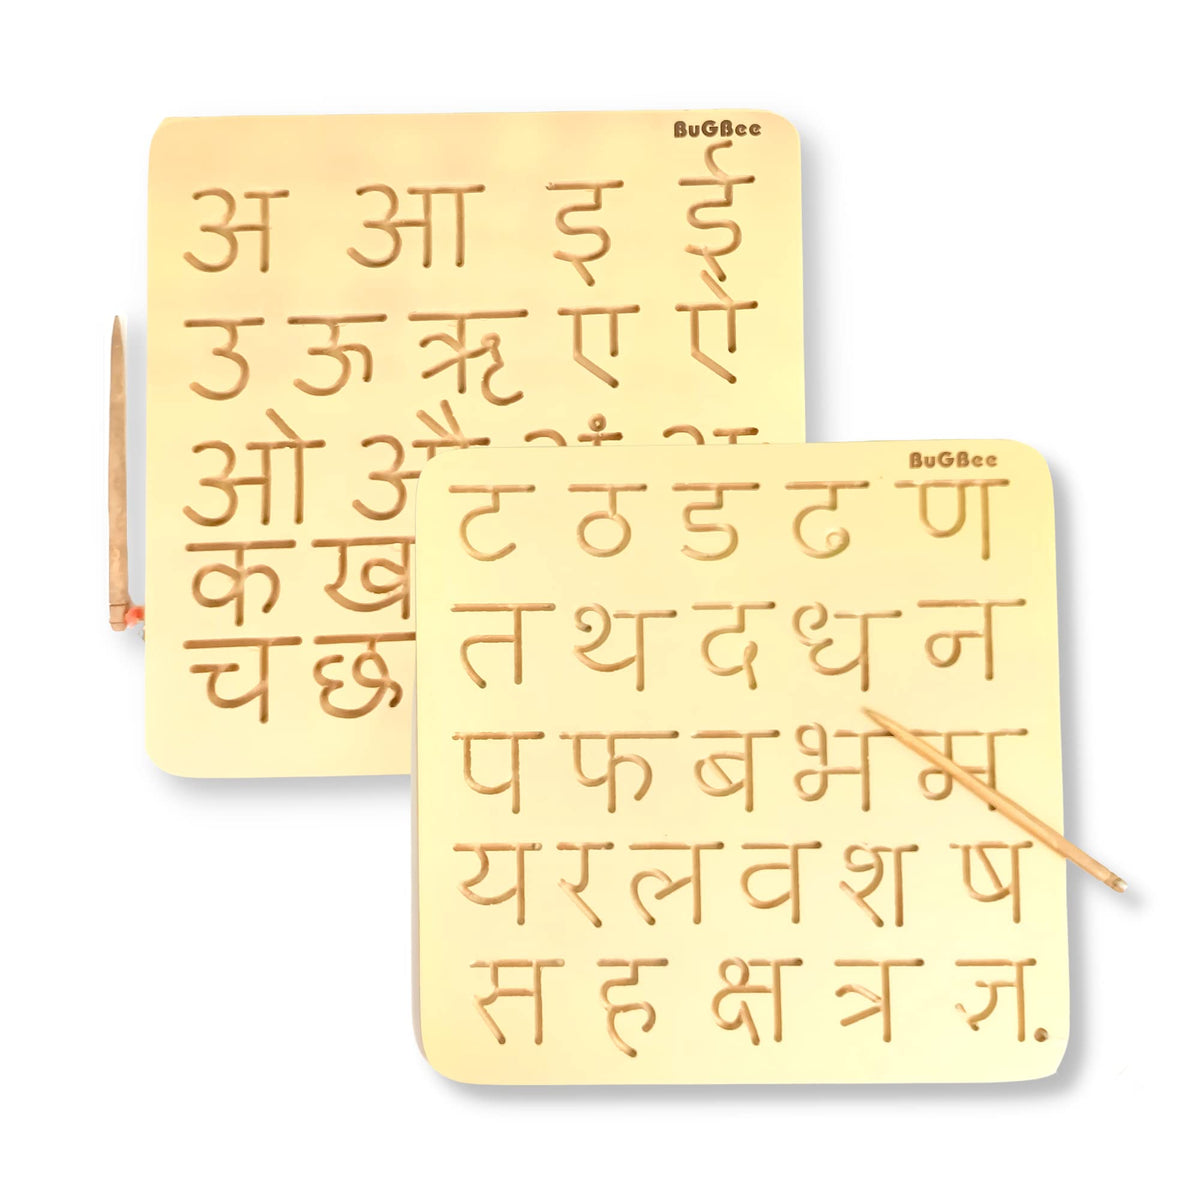 BuGBee
अ आ इ ई
उ ऊ ऋ ए ऐ
ओ औ अं अः
क ख
च छ
BuGBee
ट ठ ड ढ ण
त थ द ध न
प फ ब भ म
य र ल व श ष
स ह क्ष त्र ज्ञ.